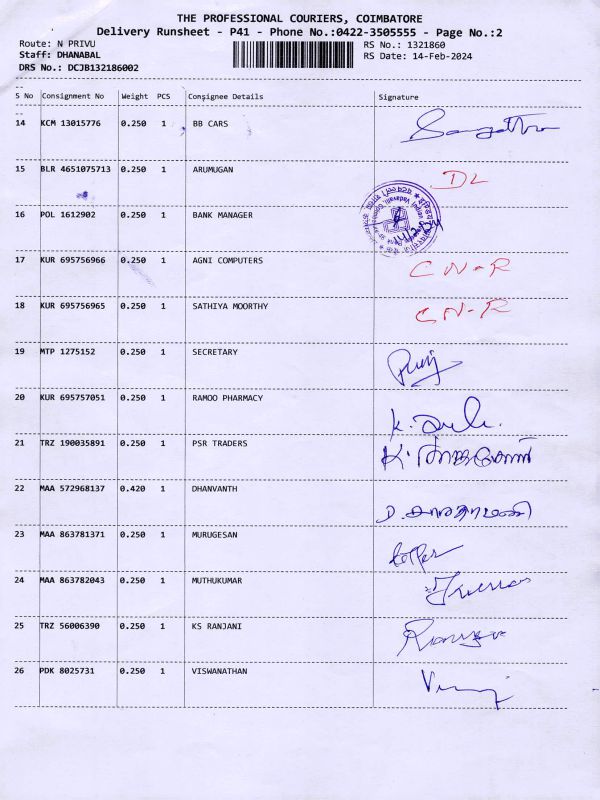 THE PROFESSIONAL COURIERS, COIMBATORE
Delivery Runsheet - P41 - Phone No.:0422-3505555 - Page No.:2
Route: N PRIVU RS No.: 1321860
Staff: DHANABAL RS Date: 14-Feb-2024
DRS No.: DCJB132186002
S No Consignment No Weight PCS Consignee Details Signature
14 KCM 13015776 0.250 1 BB CARS
15 BLR 4651075713 0.250 1 ARUMUGAN DL
16 POL 1612902 0.250 1 BANK MANAGER
17 KUR 695756966 0.250 1 AGNI COMPUTERS CN-R
18 KUR 695756965 0.250 1 SATHIYA MOORTHY CN-R
19 MTP 1275152 0.250 1 SECRETARY
20 KUR 695757051 0.250 1 RAMOO PHARMACY
21 TRZ 190035891 0.250 1 PSR TRADERS
22 MAA 572968137 0.420 1 DHANVANTH
23 MAA 863781371 0.250 1 MURUGESAN
24 MAA 863782043 0.250 1 MUTHUKUMAR
25 TRZ 56006390 0.250 1 KS RANJANI
26 PDK 8025731 0.250 1 VISWANATHAN